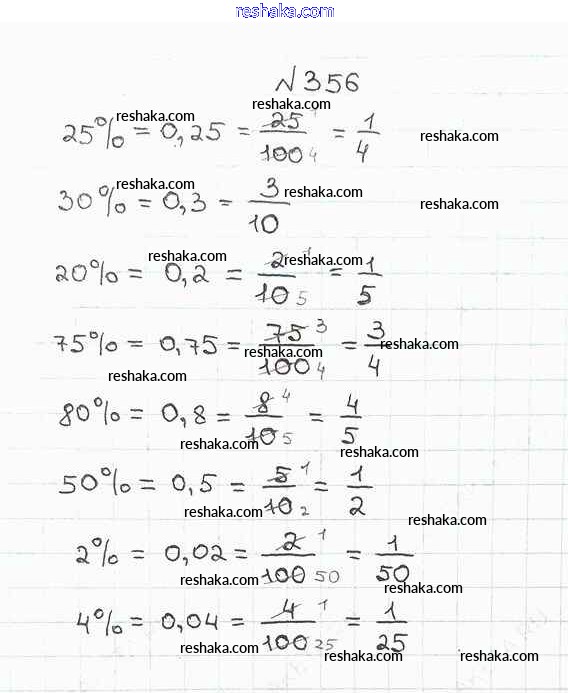 reshaka.com
№356
reshaka.com
25% = 0,25 = 25 1/100 4 = 1/4
reshaka.com
reshaka.com
reshaka.com
30% = 0,3 = 3/10
reshaka.com
reshaka.com
reshaka.com
reshaka.com
20% = 0,2 = 2 1/10 5 = 1/5
75% = 0,75 = 75 3/100 4 = 3/4
reshaka.com
reshaka.com
reshaka.com
80% = 0,8 = 8 4/10 5 = 4/5
reshaka.com
reshaka.com
50% = 0,5 = 5 1/10 2 = 1/2
reshaka.com
reshaka.com
2% = 0,02 = 2 1/100 50 = 1/50
reshaka.com
reshaka.com
4% = 0,04 = 4 1/100 25 = 1/25
reshaka.com
reshaka.com
reshaka.com